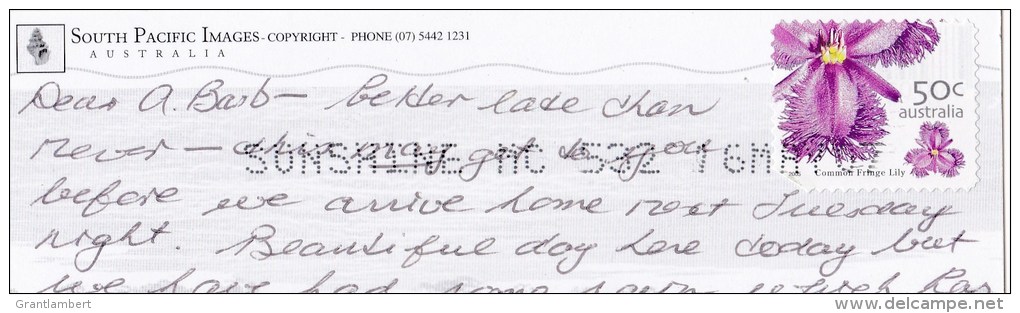 SOUTH PACIFIC IMAGES - COPYRIGHT - PHONE (07) 5442 1231
AUSTRALIA
50c
australia
Common Fringe Lily
Dear A. Barb - better late than
never - this may get to you
SUNSHINE MC 532 16MA
before we arrive home next Tuesday
night. Beautiful day here today but
we have had some rain which has
Grantlambert
www.delcampe.net